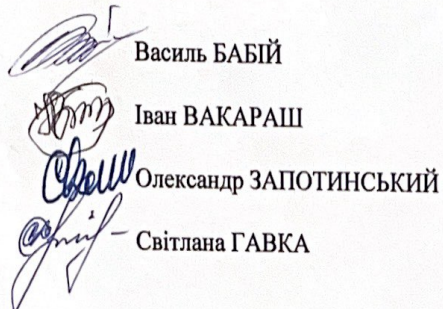 Василь БАБІЙ
Іван ВАКАРАШ
Олександр ЗАПОТИНСЬКИЙ
Світлана ГАВКА